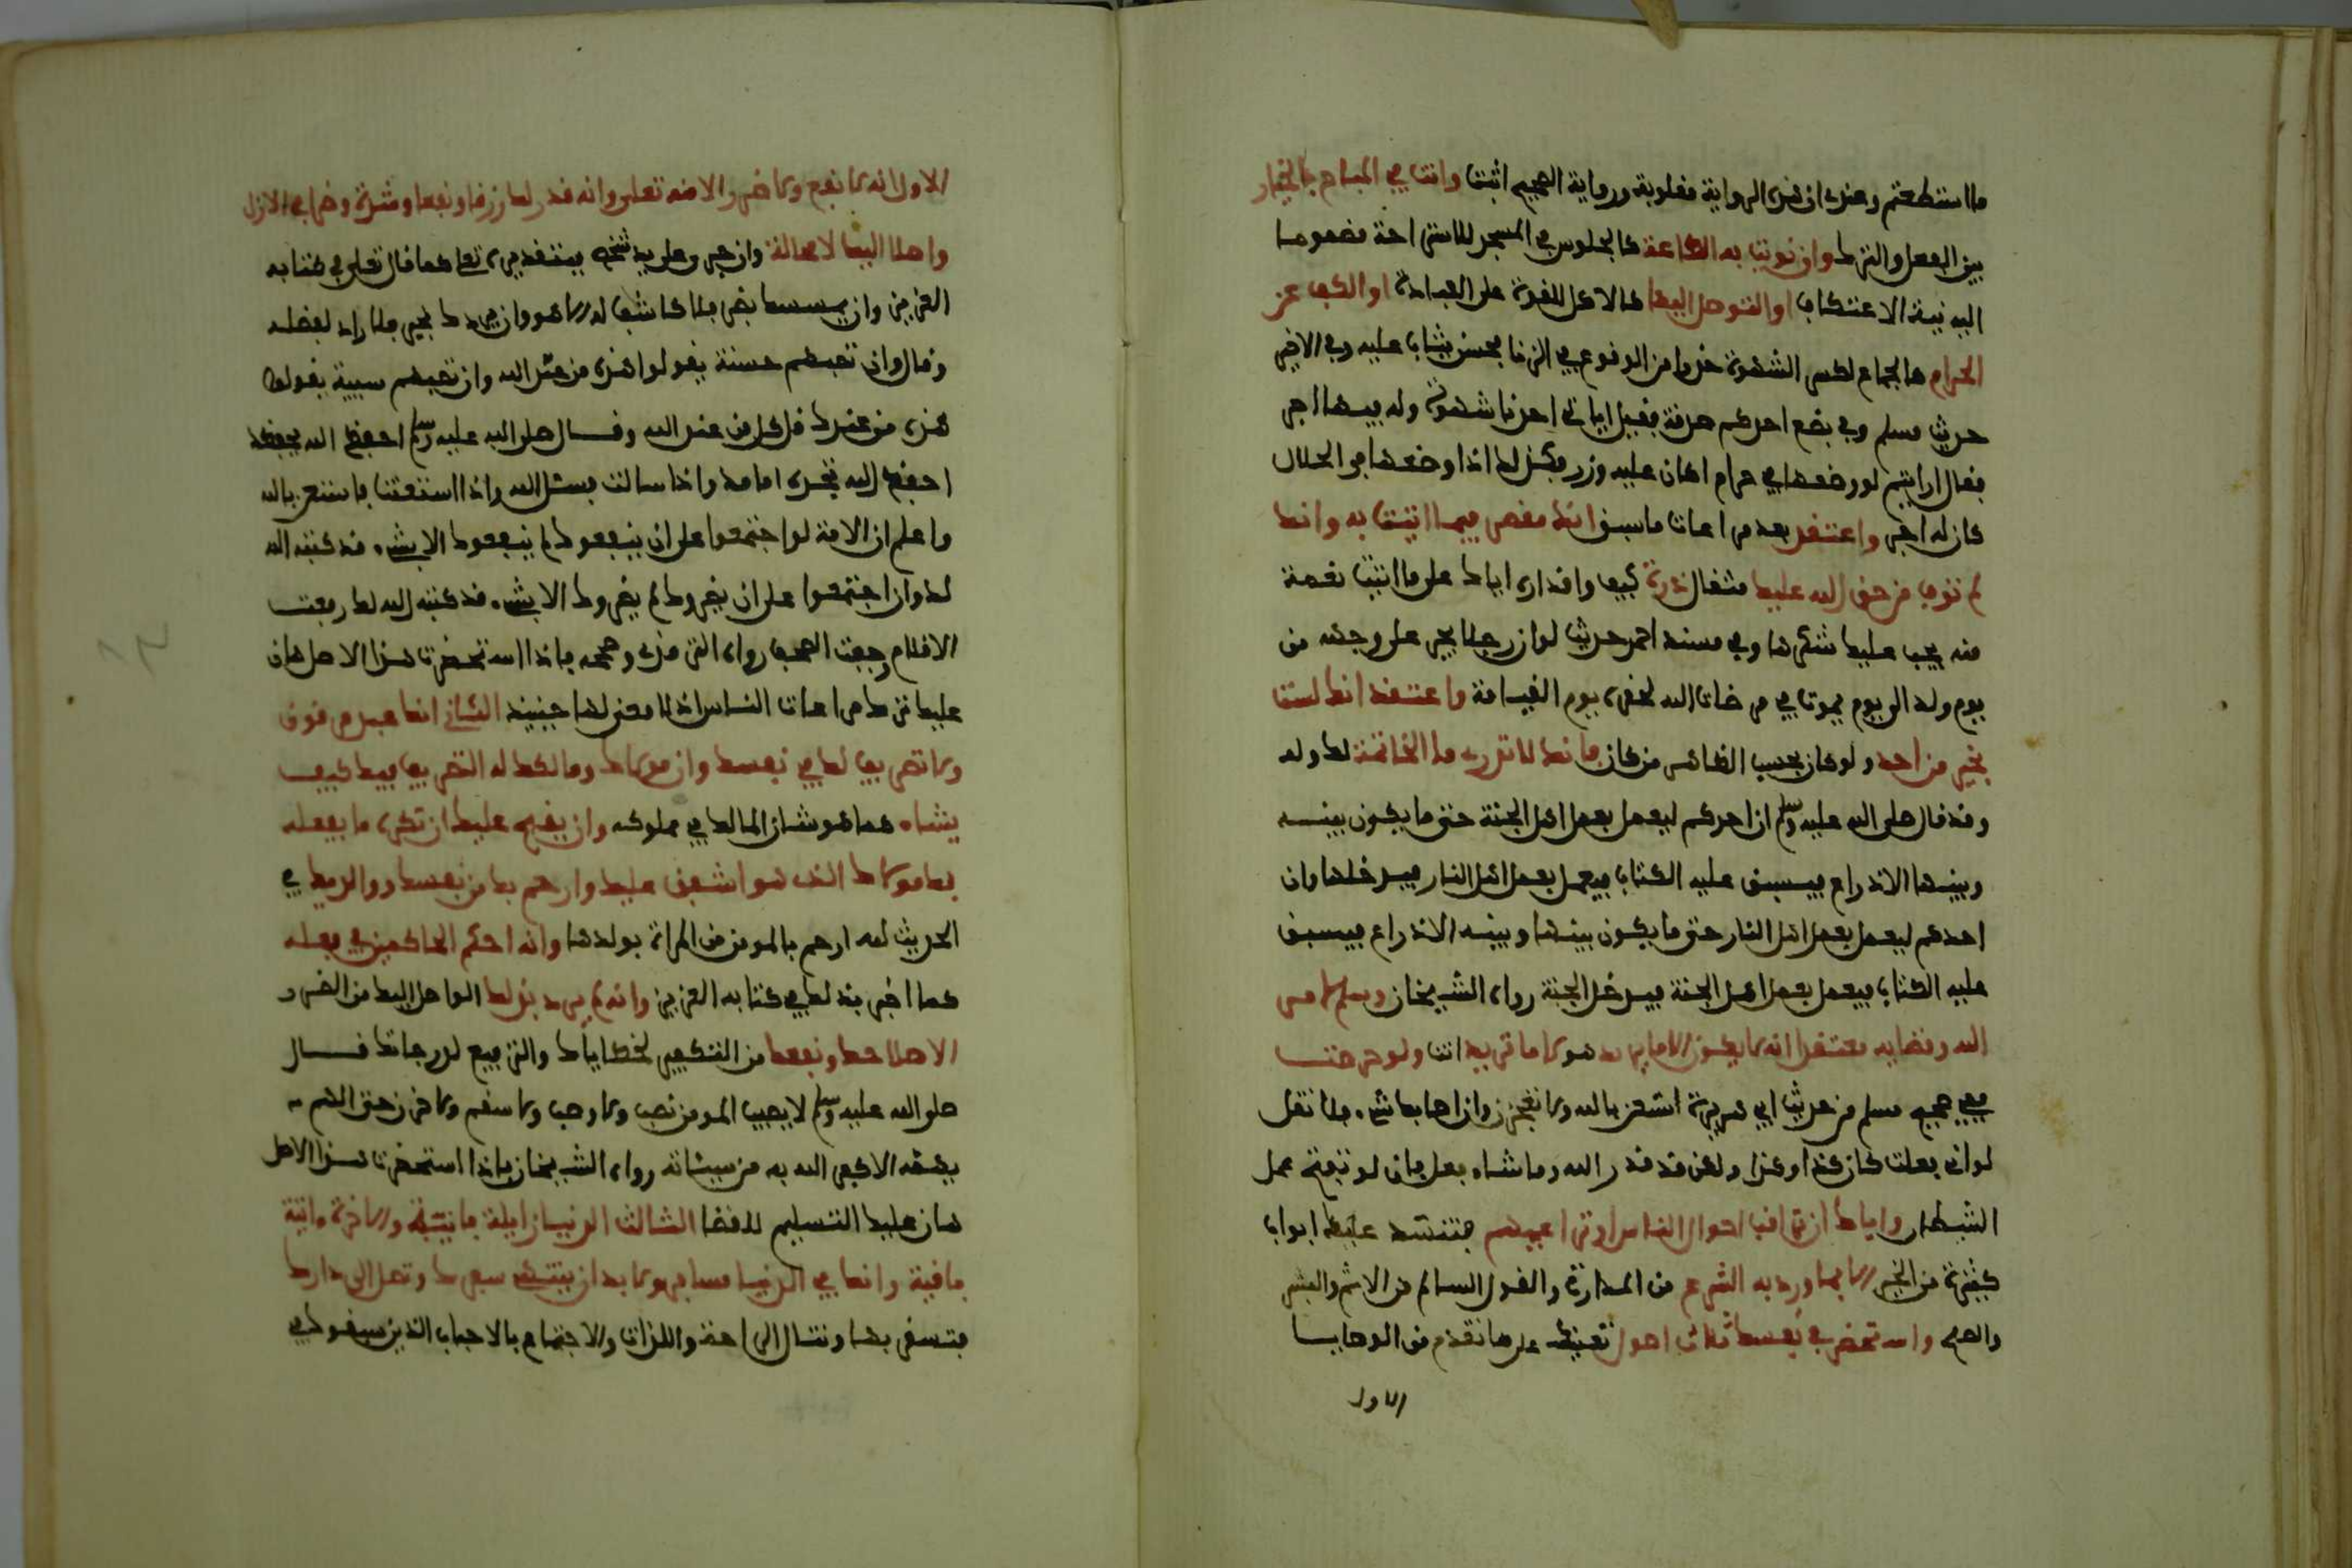 ما استطعتم وعندي ان هذه الرواية مقلوبة ورواية الصحيح اثبت وانت في المباح بالخيار
بين الفعل والترك وان نويت به الطاعة كالجلوس في المسجد للاستراحة مضموما
اليه نية الاعتكاف او التوصل اليها كالاكل للقوة على العبادة او الكف عن
الحرام كالجماع لكسر الشهوة خوفا من الوقوع في الزنا فحسن يثاب عليه وفي الاخير
حديث مسلم وفي بضع احدكم صدقة فقيل اياتي احدنا شهوته وله فيها اجر
فقال ارايتم لو وضعها في حرام اكان عليه وزر فكذلك اذا وضعها في الحلال
كان له اجر واعتقد بعد مراعات ما سبق انك مقصر فيما اتيت به وانك
لم توف من حق الله عليك مثقال ذرة كيف واقداره اياك على ما اتيت نعمة
منه يجب عليك شكرها وفي مسند احمد حديث لو ان رجلا يجر على وجهه من
يوم ولد الى يوم يموت في مرضات الله لحقره يوم القيامة واعتقد انك لست
بخير من احد ولو كان بحسب الظاهر من كان فانك لا تدري ما الخاتمة لك وله
وقد قال صلى الله عليه وسلم ان احدكم ليعمل بعمل اهل الجنة حتى ما يكون بينه
وبينها الا ذراع فيسبق عليه الكتاب فيعمل بعمل اهل النار فيدخلها وان
احدكم ليعمل بعمل اهل النار حتى ما يكون بينها وبينه الا ذراع فيسبق
عليه الكتاب فيعمل بعمل اهل الجنة فيدخل الجنة رواه الشيخان وسلم لامر
الله وقضايه معتقدا انه لا يكون الا ما يريد هو لا ما تريد انت ولو حرصت
ففي صحيح مسلم من حديث ابي هريرة استعن بالله ولا تعجزن وان اصابك شيء فلا تقل
لو اني فعلت كان كذا وكذا ولكن قل قدر الله وما شاء فعل فان لو تفتح عمل
الشيطان واياك ان تراقب احوال الناس او تراعيهم فتنسد عليك ابواب
كثيرة من الخير الا بما ورد به الشرع من المداراة والقول السالم من الاثم والبشر
والصلح واستحضر في نفسك ثلاث اصول تعينك على ما تقدم من الوصايا
الاول
الاول انه لا نفع ولا ضر الا منه تعلى وانه قدر لك رزقا ونفعا وشدة وضرا في الازل
واصلا اليك لا محالة وان جرى على يد شخص فبتقديره تعلى كما قال تعلى في كتابه
العزيز وان يمسسك بضر فلا كاشف له الا هو وان يردك بخير فلا راد لفضله
وقال وان تصبهم حسنة يقولوا هذه من عند الله وان تصبهم سيية يقولوا
هذه من عندك قل كل من عند الله وقال صلى الله عليه وسلم احفظ الله يحفظك
احفظ الله تجده امامك واذا سالت فسئل الله واذا استعنت فاستعن بالله
واعلم ان الامة لو اجتمعوا على ان ينفعوك لم ينفعوك الا بشيء قد كتبه الله
لك وان اجتمعوا على ان يضروك لم يضروك الا بشيء قد كتبه الله لك رفعت
الاقلام وجفت الصحف رواه الترمذي وصححه فاذا استحضرت هذا الاصل هان
عليك ترك مراعات الناس اذ لا معنى لها حينيذ الثاني انك عبد مرقوق
ولا تصريف لك في نفسك وان مولاك ومالكك له التصريف فيك كيف
يشاء كما هو شان المالك في مملوكه وان يقبح عليك ان تكره ما يفعله
بك مولاك الذي هو اشفق عليك وارحم بك من نفسك ووالديك في
الحديث لله ارحم بالمومن من المراة بولدها وانه احكم الحاكمين في فعله
كما اخبر بذلك في كتابه العزيز وانه لم يرد بذلك الواصل اليك من الضرر
الا صلاحك ونفعك من التكفير لخطاياك والترفيع لدرجاتك قال
صلى الله عليه وسلم لا يصيب المومن نصب ولا وصب ولا سقم ولا حزن حتى الهم
يهمه الا كفر الله به من سيئاته رواه الشيخان فاذا استحضرت هذا الاصل
هان عليك التسليم للقضا الثالث ان الدنيا زايلة فانية والاخرة اتية
باقية وانك في الدنيا مسافر ولا بد ان ينتهي سفرك وتصل الى دارك
فتسفر بها وتنال الراحة واللذات والاجتماع بالاحباب الذين سبقوك في